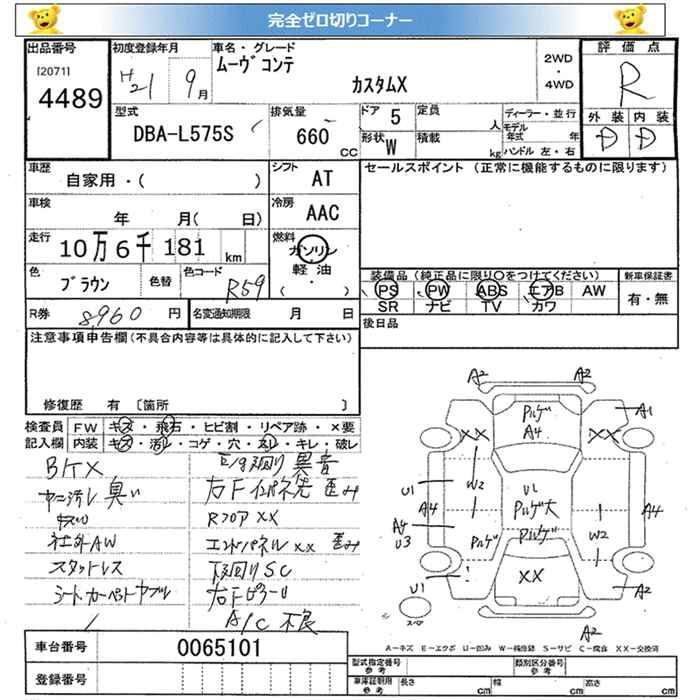 完全ゼロ切りコーナー
出品番号
[2071]
4489
初度登録年月
H21 9月
車名・グレード
ムーヴコンテ
カスタムX
2WD
・
4WD
評価点
R
外装 内装
D D
型式
DBA-L575S
排気量
660
CC
ドア 5
形状 W
定員
人
積載
kg
ディーラー・並行
モデル年式
年
ハンドル 左・右
車歴
自家用・( )
シフト
AT
セールスポイント (正常に機能するものに限ります)
車検
年 月( 日)
冷房
AAC
走行
10万6千181 km
燃料
ガソリン
軽油
( ・ )
色
ブラウン
色替
色コード
R59
装備品 (純正品に限り○をつけてください)
新車保証書
PS PW ABS エアB AW
SR ナビ TV カワ
有・無
R券
8,960 円
名変通知期限
月 日
後日品
注意事項申告欄(不具合内容等は具体的に記入して下さい)
修復歴 有 [箇所 ]
検査員
記入欄
FW キズ・飛石・ヒビ割・リペア跡・×要
内装 キズ・汚レ・コゲ・穴・スレ・キレ・破レ
臭い
異音
右Fインパネ先 歪み
RフロアXX
社外AW
エンドパネルXX 歪み
スタットレス
下廻りSC
シート・カーペトヤブル
右FピラーU
A/C不良
A2 A2
A1
パルゲ
A4
XX XX
W2
U1
U1
パルゲ大
A4
A4
A4
U3
パルゲ
パルゲ
W2
XX
!
U1
スペア
A2
A2
A－キズ E－エクボ U－凹み W－補修跡 S－サビ C－腐食 XX－交換済
車台番号
0065101
登録番号
型式指定番号
参考
類別区分番号
参考
車庫証明用
参考
長さ cm
幅 cm
高さ cm